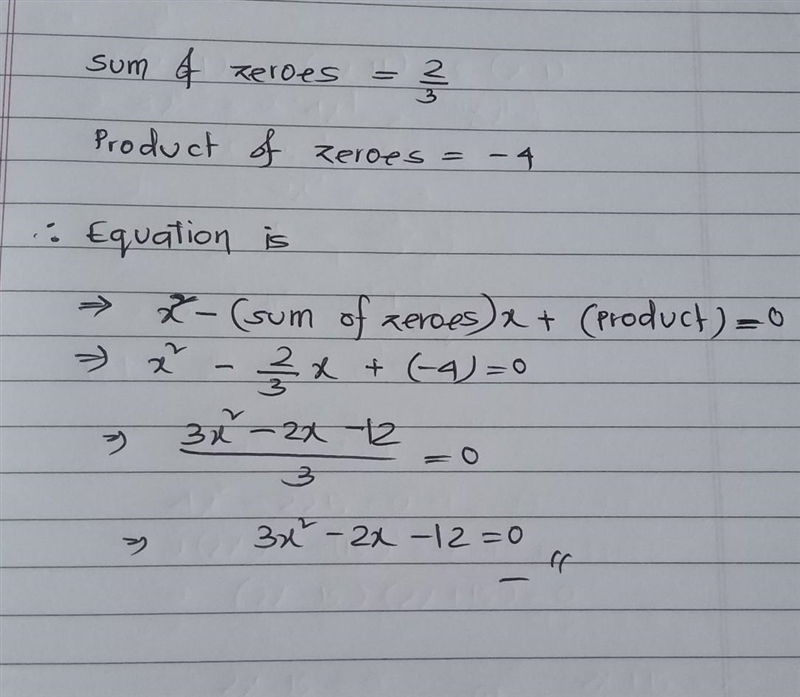 sum of zeroes = 2/3
Product of zeroes = -4
∴ Equation is
⇒ x² - (sum of zeroes)x + (product) = 0
⇒ x² - 2/3 x + (-4) = 0
⇒ (3x² - 2x - 12)/3 = 0
⇒ 3x² - 2x - 12 = 0